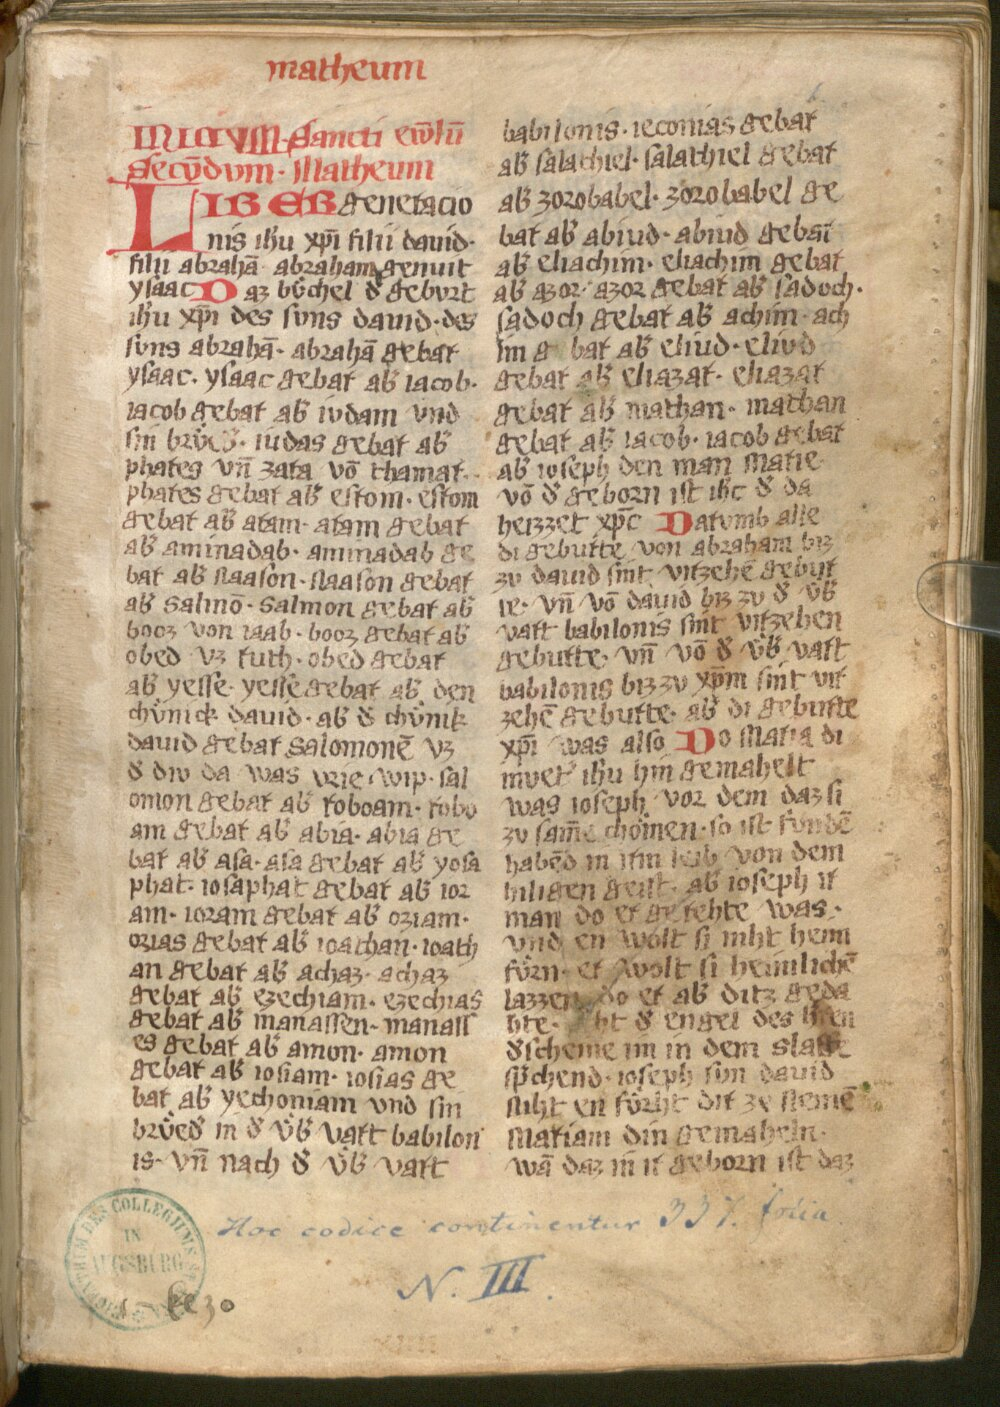 matheum
INICIVM · Sancti ew̄lii
Secv̄dvm · Matheum
LIBER generacio
nis ihu xp̄i filii dauid ·
filii abrahā · abraham genuit
ysaac Daz bv̊chel d̕ gebvrt
ihu xp̄i des svns dauid · des
svns abrahā · abrahā gebar
ysaac · ysaac gebar ab̕ iacob ·
iacob gebar ab̕ ivdam vnd
sin brv̊d̕ · iudas gebar ab̕
phares vn̄ zara vō thamar ·
phares gebar ab̕ esrom · esrom
gebar ab̕ aram · aram gebar
ab̕ aminadab · aminadab ge
bar ab̕ naason · naason gebar
ab̕ Salmō · Salmon gebar ab̕
booz von raab · booz gebar ab̕
obed vz ruth · obed gebar
ab̕ yesse · yesse gebar ab̕ den
chvnick dauid · ab̕ d̕ chvnik
dauid gebar Salomonē vz
d̕ div da was vrie · wip · sal
omon gebar ab̕ roboam · robo
am gebar ab̕ abia · abia ge
bar ab̕ asa · asa gebar ab̕ yosa
phat · iosaphat gebar ab̕ ior
am · ioram gebar ab̕ oziam ·
ozias gebar ab̕ ioathan · ioath
an gebar ab̕ achaz · achaz
gebar ab̕ ezechiam · ezechias
gebar ab̕ manassen · manass
es gebar ab̕ amon · amon
gebar ab̕ iosiam · iosias ge
bar ab̕ yechoniam vnd sin
brv̊d̕ in d̕ v̕b̕ vart babilon
is · vn̄ nach d̕ v̕b̕ vart
babilonis · ieconias gebar
ab̕ salathiel · salathiel gebar
ab̕ zorobabel · zorobabel ge
bar ab̕ abiud · abiud gebar
ab̕ eliachim · eliachim gebar
ab̕ azor · azor gebar ab̕ sadoch ·
sadoch gebar ab̕ achim · ach
im g bar ab̕ eliud · eliud
gebar ab̕ eliazar · eliazar
gebar ab̕ mathan · mathan
gebar ab̕ iacob · iacob gebar
ab̕ ioseph den man Marie ·
vō d̕ geborn ist ih̄c d̕ da
heizzet xp̄c Darvmb alle
di geburte von abraham biz
zv dauid sint virzehē gebvr
te · vn̄ vō dauid biz zv d̕ v̕b̕
vart babilonis sint virzehen
geburte · vn̄ vō d̕ v̕b̕ vart
babilonis biz zv xp̄m sint vir
zehē geburte · ab̕ di geburte
xp̄i was also Do Maria di
mvet̕ ihu him gemahelt
was ioseph vor dem daz si
zv sam̄e chomen · so ist fundē
habēd in irm leib von dem
hiligen geist · ab̕ ioseph ir
man do er gerehte was ·
vnd en wolt si niht heim
fvrn · er wolt si heimlichē
lazzen do er ab̕ ditz geda
hte · ht d̕ engel des h̕ren
d̕scheine im in dem slaffe
sp̄chend · ioseph svn dauid
niht en fvrht dir ze nemē
Mariam din gemaheln ·
wā daz in ir geborn ist daz
Hoc codice continentur 337. folia
N. III.
DES COLLEGIUMS
IN
AUGSBURG